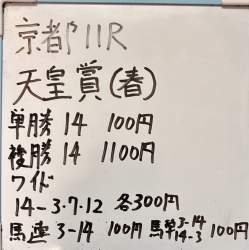 京都11R
天皇賞(春)
単勝 14 100円
複勝 14 1100円
ワイド
14-3・7・12 各300円
馬連 3-14 100円 馬単 3-14 14-3 100円